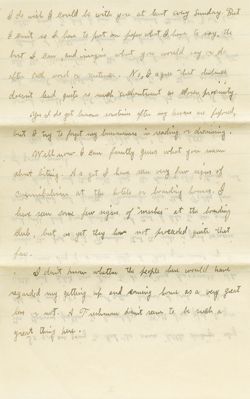 I do wish I could be with you at least every Sunday. But
I suit is I have to put on paper what I have to say, the
best I can, and imagine what you would say or do
after each word or sentence. No, I agree that distance
doesn't lend quite so much enchantment as
Yes I do get lonesome sometimes after my lessons are prepared,
but I try to forget my lonesomeness in reading or dreaming.
Well now I can faintly guess what you mean
about biting. As yet I have seen very few signs of
cannibalism at the hotels or boarding houses. I
have seen some few signs of "mashes" at the boarding
club, but as yet they have not proceeded quite that
far.
I don't know whether the people here would have
regarded my getting up and coming home as a very great
loss or not. A Freshman don't seem to be such a
great thing here.